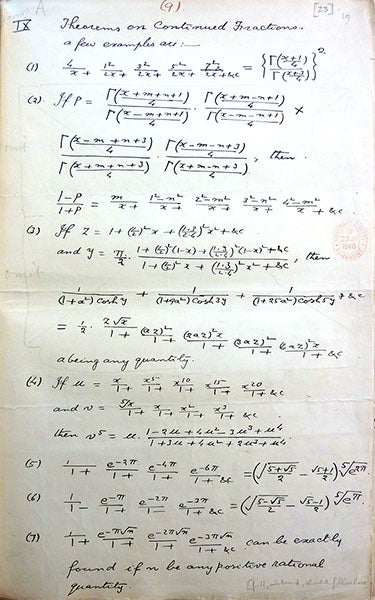 (9)
[23].
IX Theorems on Continued Fractions.
a few examples are:—
(1) 4/x + 1²/2x + 3²/2x + 5²/2x + 7²/2x + &c = {Γ((x+1)/4) / Γ((x+3)/4)}²
(2) If P = Γ((x+m+n+1)/4)/Γ((x-m+n+1)/4) · Γ((x+m-n+1)/4)/Γ((x-m-n+1)/4) ×
Γ((x-m+n+3)/4)/Γ((x+m+n+3)/4) · Γ((x-m-n+3)/4)/Γ((x+m-n+3)/4), then
(1-P)/(1+P) = m/x + 1²-n²/x + 2²-m²/x + 3²-n²/x + 4²-m²/x + &c
omit
(3) If z = 1 + (1/2)² x + (1·3/2·4)² x² + &c
and y = π/2 · (1 + (1/2)² (1-x) + (1·3/2·4)² (1-x)² + &c) / (1 + (1/2)² x + (1·3/2·4)² x² + &c), then
omit
1/((1+a²) cosh y) + 1/((1+9a²) cosh 3y) + 1/((1+25a²) cosh 5y) + &c
= 1/2 · z√x/1 + (az)²/1 + (2az)²x/1 + (3az)²/1 + (4az)²x/1 + &c
a being any quantity.
(4) If u = x/1 + x⁵/1 + x¹⁰/1 + x¹⁵/1 + x²⁰/1 + &c
and v = ⁵√x/1 + x/1 + x²/1 + x³/1 + &c,
then v⁵ = u · (1 - 2u + 4u² - 3u³ + u⁴)/(1 + 3u + 4u² + 2u³ + u⁴)
(5) 1/1 + e^(-2π)/1 + e^(-4π)/1 + e^(-6π)/1 + &c = (√((5+√5)/2) - (√5+1)/2) ⁵√(e^(2π))
(6) 1/1 - e^(-π)/1 + e^(-2π)/1 - e^(-3π)/1 + &c = (√((5-√5)/2) - (√5-1)/2) ⁵√(e^π)
(7) 1/1 + e^(-π√n)/1 + e^(-2π√n)/1 + e^(-3π√n)/1 + &c can be exactly
found if n be any positive rational
quantity.